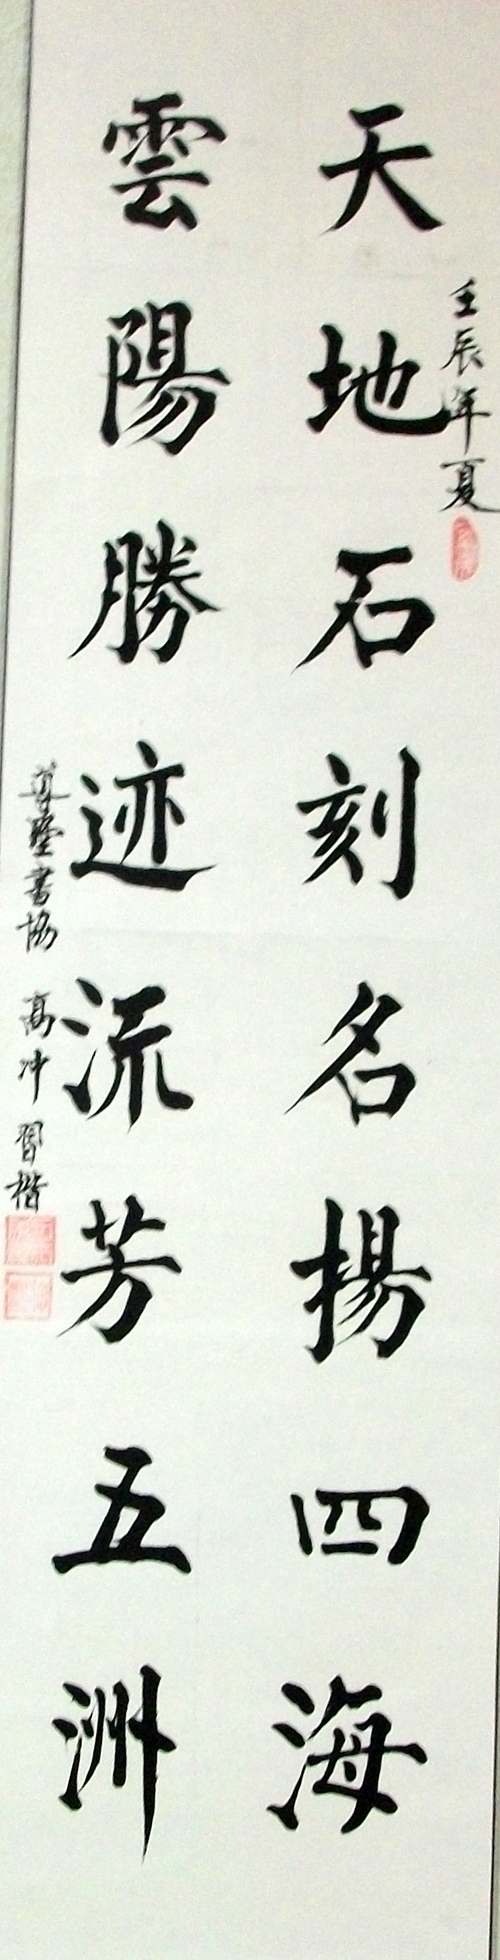 壬辰年夏
天地石刻名揚四海
雲陽勝迹流芳五洲
書協 高冲習楷